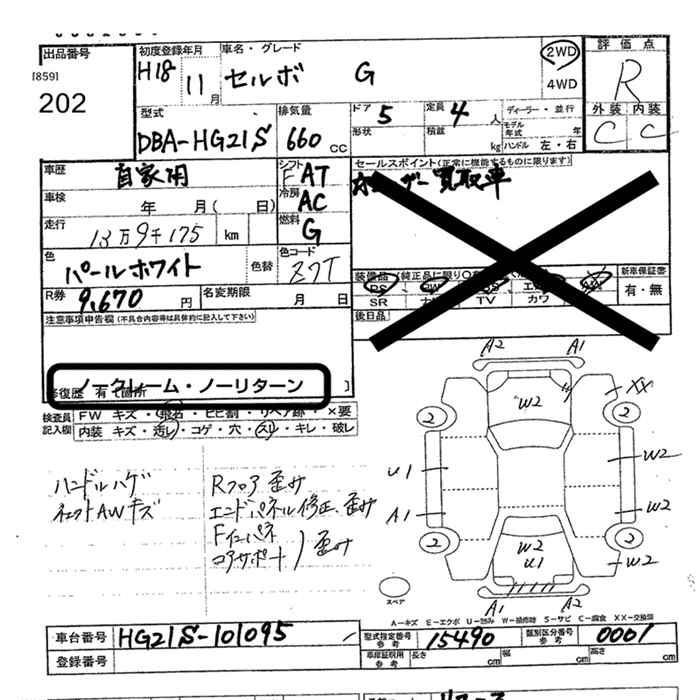 出品番号
[859]
202
初度登録年月
H18 11月
車名・グレード
セルボ G
2WD
4WD
評価点
R
外装 内装
C C
型式
DBA-HG21S
排気量
660 CC
ドア 5
形状
定員 4 人
積載 kg
ディーラー・並行
モデル年式 年
ハンドル 左・右
車歴
自家用
シフト
FAT
セールスポイント(正常に機能するものに限ります)
買取車
車検
年 月( 日)
冷房
AC
走行
13万9千175 km
燃料
G
色
パールホワイト
色替
色コード
Z7T
装備品(純正品に限り○を
新車保証書
有・無
PS PW
SR TV カワ
後日品
R券
9,670 円
名変期限
月 日
注意事項申告欄(不具合内容等は具体的に記入して下さい)
ノークレーム・ノーリターン
修復歴 有 箇所
検査員記入欄
FW キズ・飛石・ヒビ割・リペア跡・×要
内装 キズ・汚レ・コゲ・穴・スレ・キレ・破レ
ハンドルハゲ
チェットAWキズ
Rフロア歪み
エンドパネル修正、歪み
Fインパネ
コアサポート 歪み
A2 A1
W2
XX
2 2
U1
W2
A1
W2
2 2
W2
U1
W2
A1 A2
スペア
A-キズ E-エクボ U-凹み W-補修跡 S-サビ C-腐食 XX-交換済
車台番号
HG21S-101095
型式指定番号 参考
15490
類別区分番号 参考
0001
登録番号
車庫証取用 参考
長さ cm
幅 cm
高さ cm